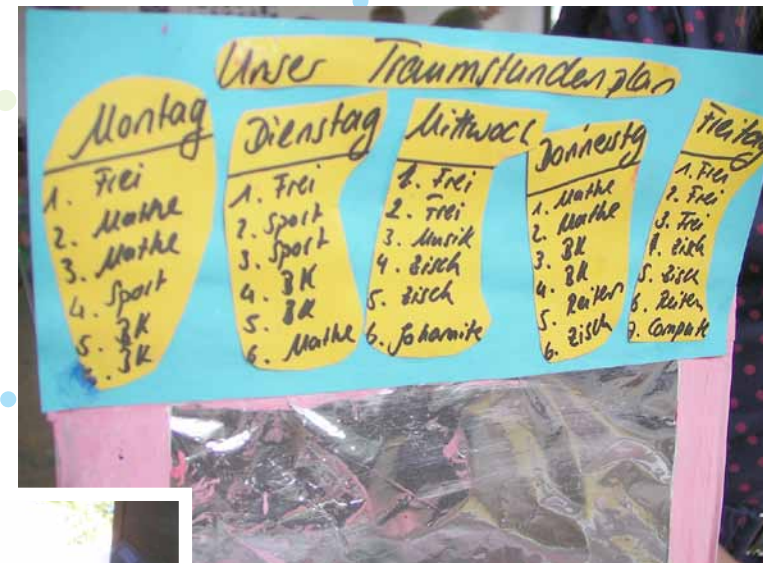 Unser Traumstundenplan
Montag
1. Frei
2. Mathe
3. Mathe
4. Sport
5. BK
6. BK
Dienstag
1. Frei
2. Sport
3. Sport
4. BK
5. BK
6. Mathe
Mittwoch
1. Frei
2. Frei
3. Musik
4. Zisch
5. Zisch
6. Johannite
Donnerstg
1. Mathe
2. Mathe
3. BK
4. BK
5. Reiten
6. Zisch
Freitag
1. Frei
2. Frei
3. Frei
4. Zisch
5. Zisch
6. Reiten
7. Compute